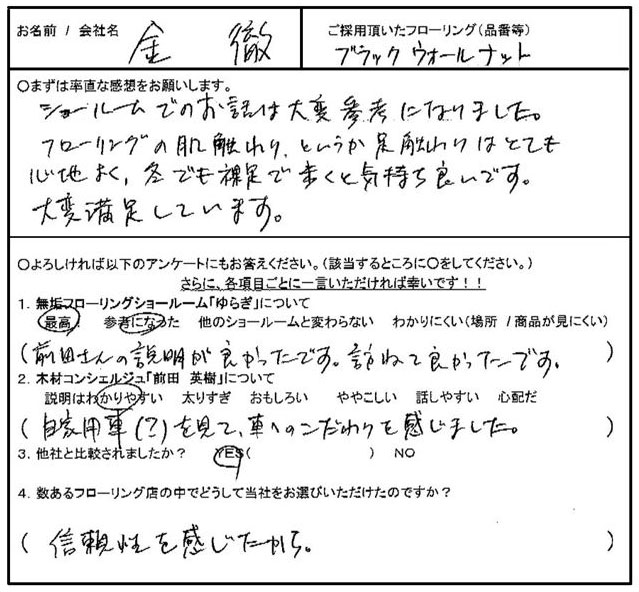 お名前 / 会社名 金 徹 ご採用頂いたフローリング(品番等)
ブラック ウォールナット
○まずは率直な感想をお願いします。
ショールームでのお話は大変参考になりました。
フローリングの肌触わり、というか足触わりはとても
心地よく、冬でも裸足で歩くと気持ち良いです。
大変満足しています。
○よろしければ以下のアンケートにもお答えください。(該当するところに○をしてください。)
さらに、各項目ごとに一言いただければ幸いです!!
1. 無垢フローリングショールーム「ゆらぎ」について
最高! 参考になった 他のショールームと変わらない わかりにくい(場所 /商品が見にくい)
(前田さんの説明が良かったです。訪ねて良かったです。)
2. 木材コンシェルジュ「前田 英樹」について
説明はわかりやすい 太りすぎ おもしろい ややこしい 話しやすい 心配だ
(自家用車(?)を見て、車へのこだわりを感じました。)
3. 他社と比較されましたか? YES( ) NO
4. 数あるフローリング店の中でどうして当社をお選びいただけたのですか?
(信頼性を感じたから。)